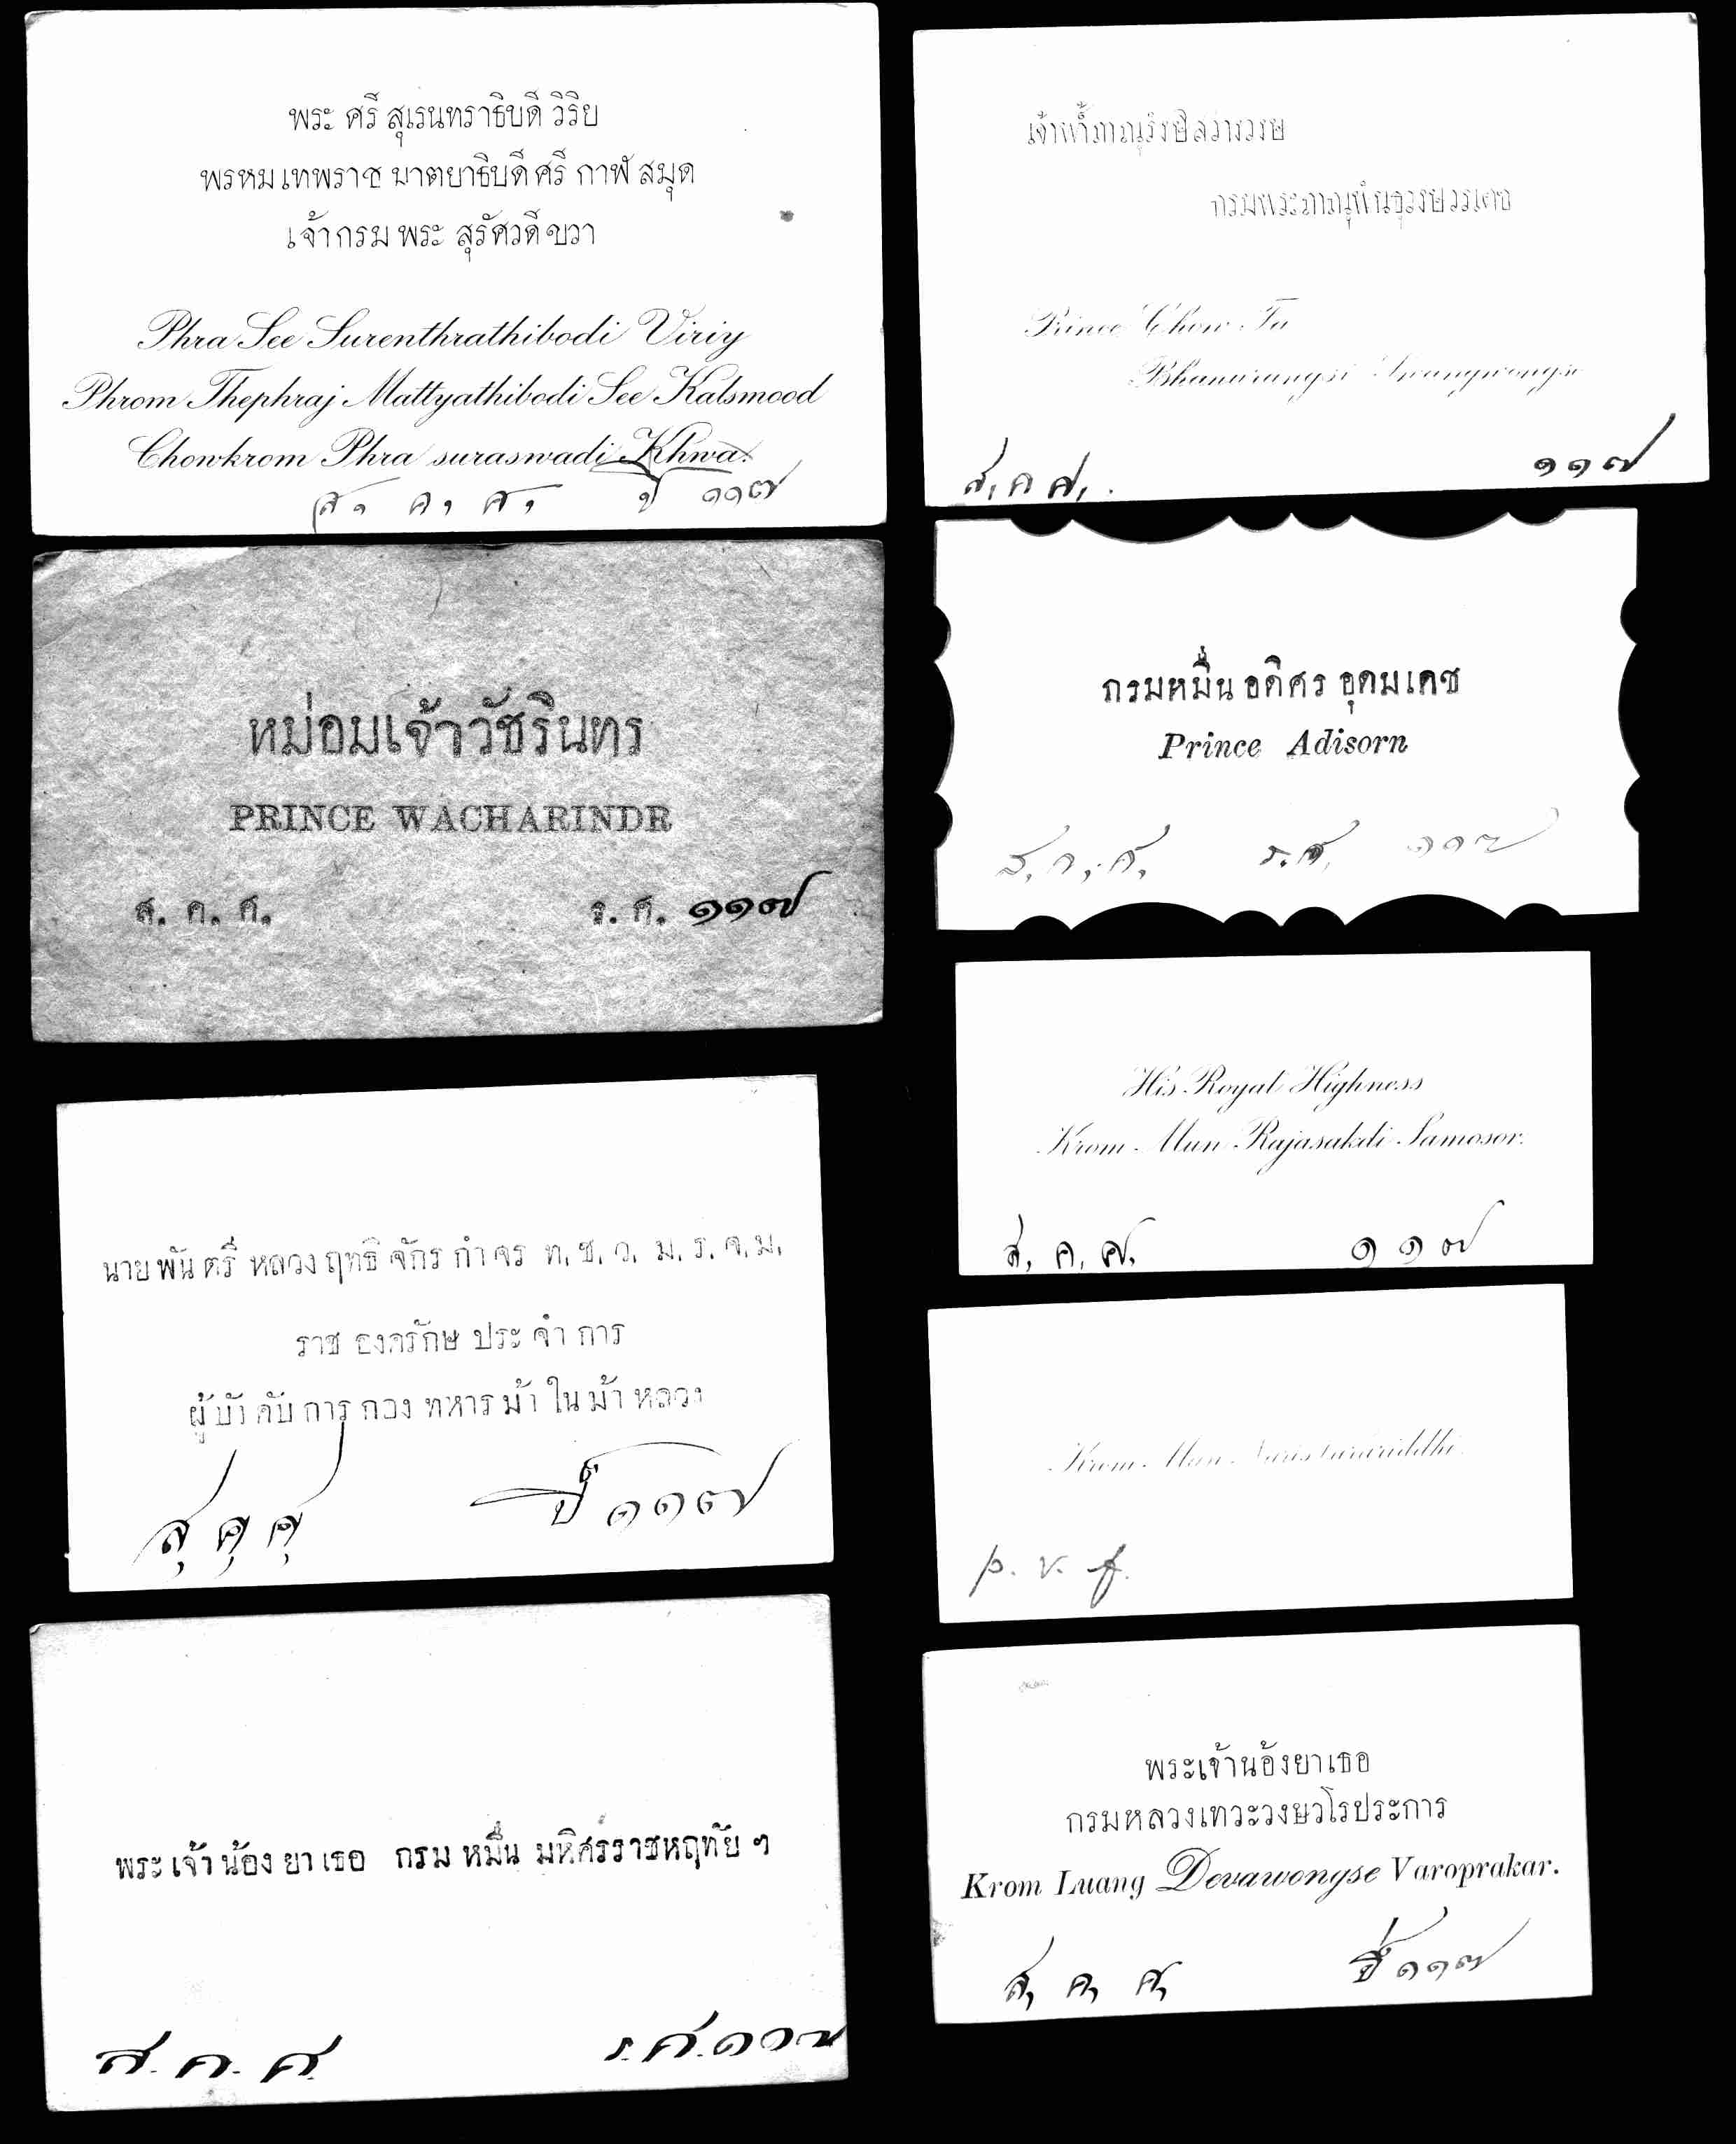 พระ ศรี สุเรนทราธิบดี วิริย
พรหม เทพราช มาตยาธิบดี ศรี กาฬ สมุด
เจ้ากรม พระ สุรัศวดี ขวา
Phra See Surenthrathibodi Viriy
Phrom Thephraj Mattyathibodi See Kalsmood
Chowkrom Phra suraswadi Khwa.
ส, ค, ศ, ปี ๑๑๗
หม่อมเจ้าวัชรินทร
PRINCE WACHARINDR
ส. ค. ศ. ร. ศ. ๑๑๗
นาย พัน ตรี หลวง ฤทธิ จักร กำจร ท. ช. ว. ม. ร. จ. ม.
ราช องครักษ ประ จำ การ
ผู้ บัง คับ การ กอง ทหาร ม้า ใน ม้า หลวง
ส, ค, ศ, ปี ๑๑๗
พระ เจ้า น้อง ยา เธอ กรม หมื่น มหิศรราชหฤทัย ๆ
ส. ค. ศ. ร. ศ. ๑๑๗
เจ้าฟ้าภาณุรังษีสว่างวงษ
กรมพระภาณุพันธุวงษวรเดช
Prince Chow Fa
Bhanurangsi Swangwongse
ส, ค ศ, ๑๑๗
กรมหมื่น อดิศร อุดมเดช
Prince Adisorn
ส, ค, ศ, ร. ศ, ๑๑๗
His Royal Highness
Krom Mun Rajasakdi Samosor.
ส, ค, ศ, ๑๑๗
Krom Mun
p. v. f.
พระเจ้านอ้งยาเธอ
กรมหลวงเทวะวงษวโรประการ
Krom Luang Devawongse Varoprakar.
ส, ค, ศ, ปี ๑๑๗